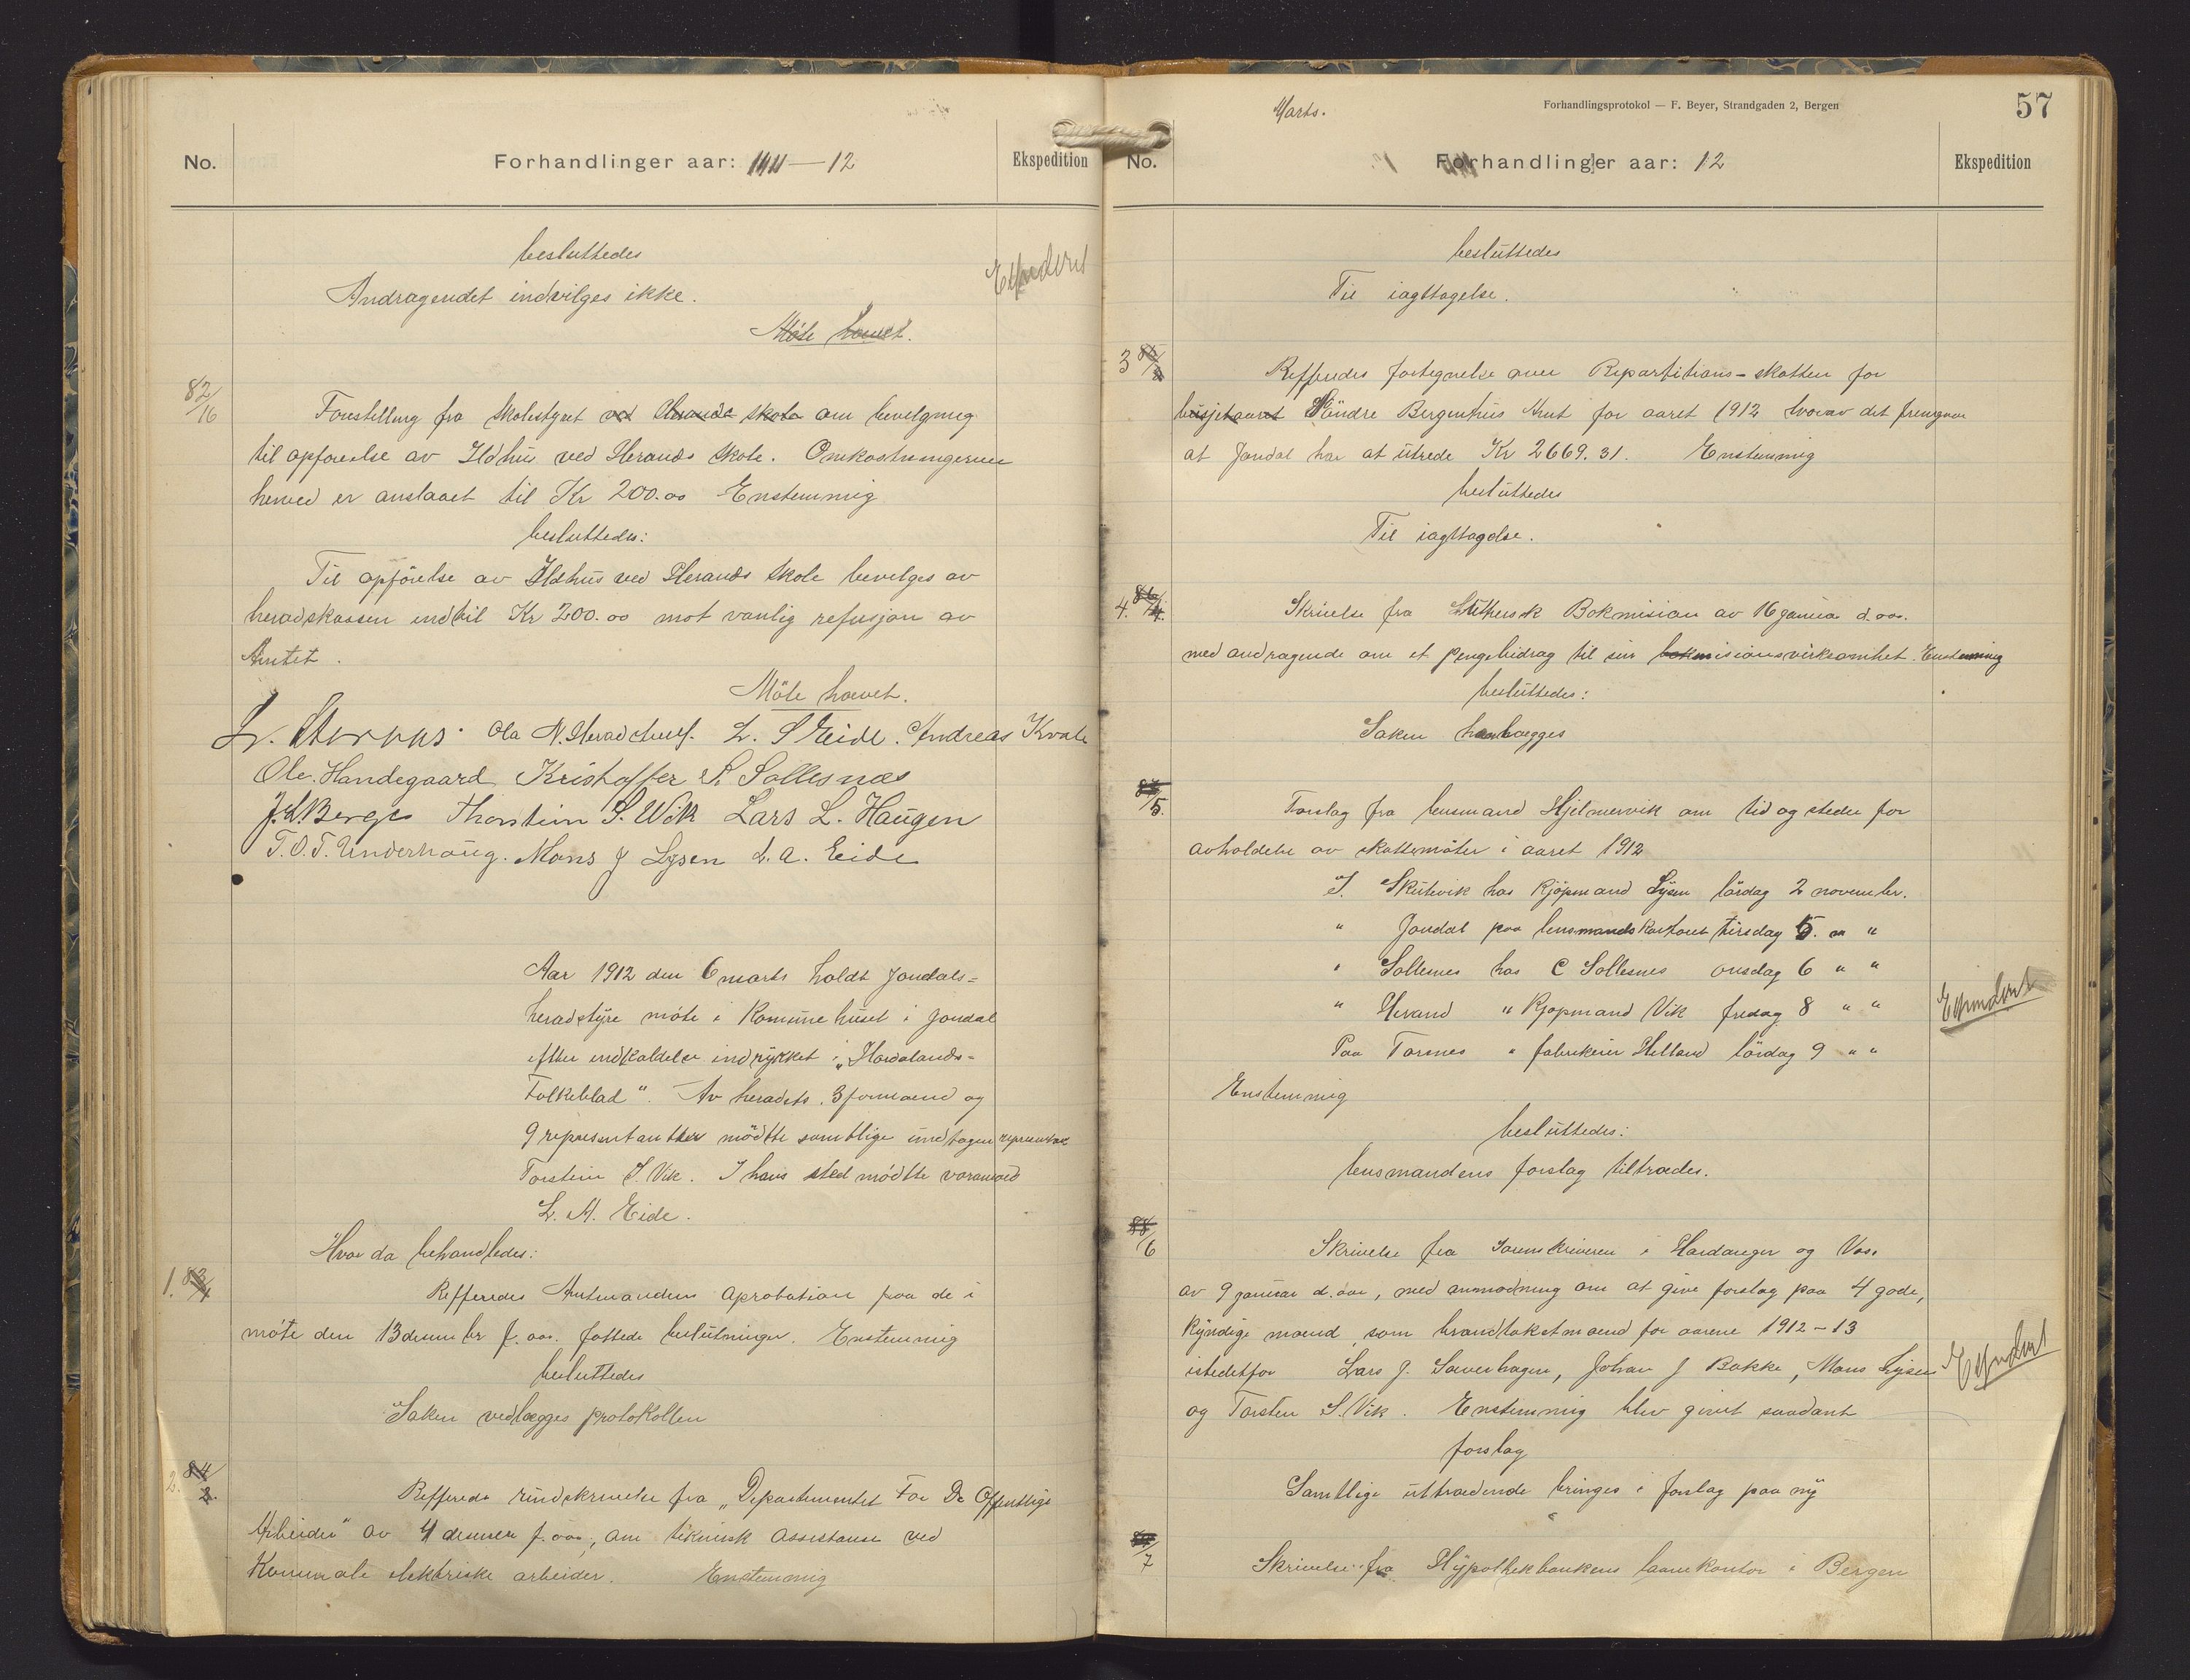 No.
Forhandlinger aar: 1911—12
Ekspedition
besluttedes
Andragendet indvilges ikke.
Expedert
Møte hævet.
82/16
Forestilling fra skolestyret ved Herands skole om bevilgning
til opførelse av Ildhus ved Herands skole. Omkostningerne
herved er anslaaet til Kr 200.00 Enstemmig
besluttedes:
Til opførelse av Ildhus ved Herands skole bevilges av
heradskassen indtil Kr 200.00 mot vanlig refusjon av
Amtet.
Møte hævet.
Ola N. Heradstveit. L. S Eide. Andreas Kvale
Ole Handegaard Kristoffer S. Sollesnæs
J. S. Berge Thorstein S. Wik Lars L. Haugen
T. O. T. Underhaug. Mons J Lysen L. A. Eide
Aar 1912 den 6 marts holdt Jondals-
heradstyre møte i Komunehuset i Jondal
efter indkaldelse indrykket i „Hordalands-
Folkeblad“. Av heradets 3 formænd og
9 representanter mødtte samtlige undtagen
Torstein S. Vik. I hans sted mødtte varamand
L. A. Eide.
Hvor da behandledes:
1. 83/1
Refferedes Amtmandens aprobation paa de i
møte den 13 december f. aar. fattede beslutninger. Enstemmig
besluttedes
Saken vedlægges protokollen
2. 84/2.
Refferedes rundskrivelse fra „Departementet For De Offentlige
Arbeider“ av 4 f. aar, om teknisk assistanse ved
Komunale elektriske arbeider. Enstemmig
Marts.
Forhandlingsprotokol — F. Beyer, Strandgaden 2, Bergen
57
No.
Forhandlinger aar: 12
Ekspedition
besluttedes
Til iagttagelse.
3 85/3
Refferedes fortegnelse over Repartitions-skatten for
busjetaaret Søndre Bergenhus Amt for aaret 1912 hvorav det fremgaar
at Jondal har at utrede Kr 2669.31. Enstemmig
besluttedes
Til iagttagelse.
4. 86/4.
Skrivelse fra Luthersk Bokmision av 16 januar d. aar.
med andragende om et pengebidrag til sin bokmisionsvirksomhet. Enstemmig
besluttedes:
Saken henlægges
87/5.
Forslag fra lensmand Hjelmervik om tid og steder for
avholdelse av skattemøter i aaret 1912
I. Skutevik hos Kjøpmand Lysen lørdag 2 november.
" Jondal paa lensmandskontoret tirsdag 5. " "
" Sollesnes hos C Sollesnes onsdag 6 " "
" Herand " Kjøpmand Vik fredag 8 " "
Paa Torsnes " fabrikeier Helland lørdag 9 " "
Expedert
Enstemmig
besluttedes:
lensmandens forslag tiltrædes.
88/6
Skrivelse fra Sorenskriveren i Hardanger og Vos.
av 9 januar d. aar, med anmodning om at give forslag paa 4 gode,
kyndige mænd som brandtakstmænd for aarene 1912-13
istedetfor Lars J. Saverhagen, Johan J Bakke, Mons Lysen
og Torsten S. Vik. Enstemmig blev givet saadant
Expedert
forslag
Samtlige uttrædende bringes i forslag paa ny
89/7
Skrivelse fra Hypothekbankens laanekontor i Bergen